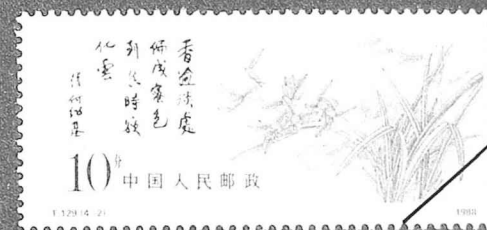 香愈淡處
偏成蜜色
到
時彌
化雲
10分
中国人民邮政
T.129.(4-2)
1988